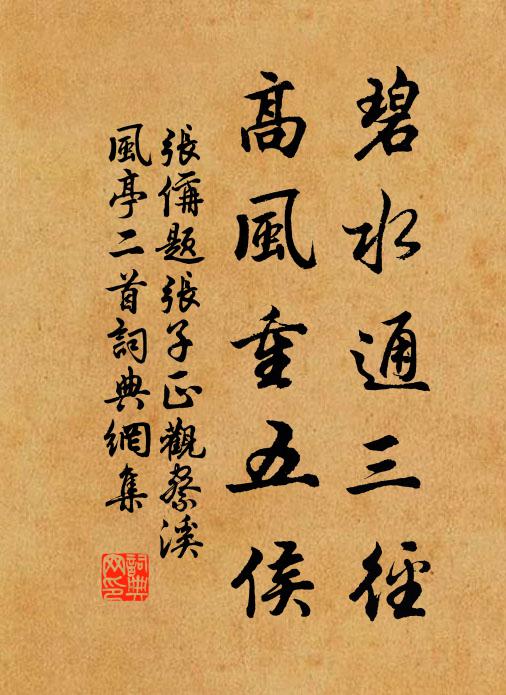 碧水通三徑
高風重五侯
張偁題張子正觀察溪
風亭二首詞典網集
詞典
网印